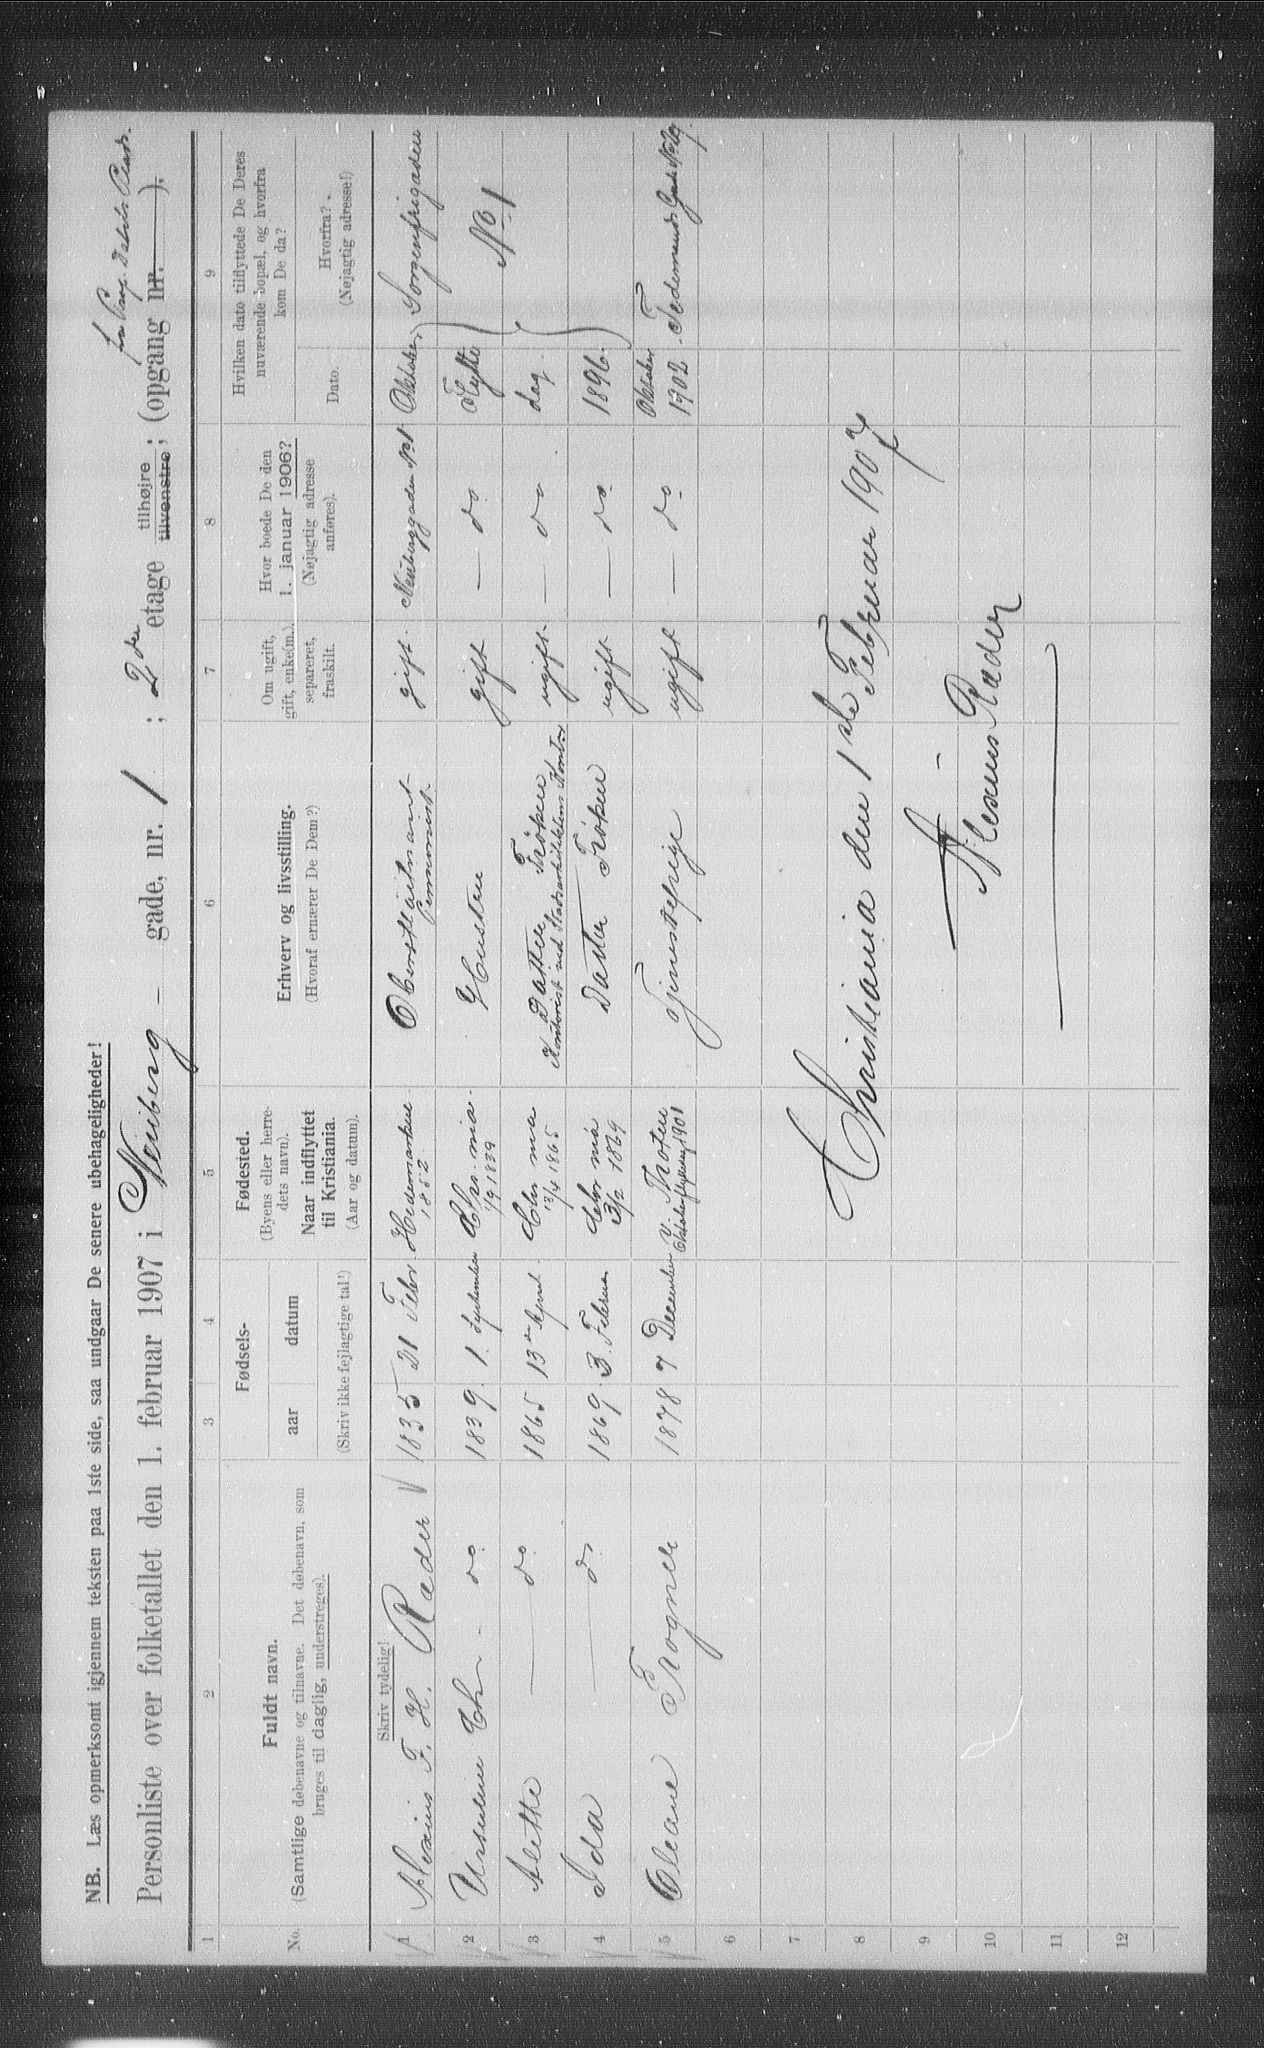 NB. Læs opmerksomt igjennem teksten paa 1ste side, saa undgaar De senere ubehageligheder!
Personliste over folketallet den 1. februar 1907 i Neuberg - gade, nr. 1 ; 2den etage tilhøjre tilvenstre; (opgang nr. ).
1 2 3 4 5 6 7 8 9
No.
Fuldt navn.
(Samtlige døbenavne og tilnavne. Det døbenavn, som
bruges til daglig, understreges).
Fødsels-
aar datum
(Skriv ikke fejlagtige tal!)
Fødested.
(Byens eller herre-
dets navn).
Naar indflyttet
til Kristiania.
(Aar og datum).
Erhverv og livsstilling.
(Hvoraf ernærer De Dem?)
Om ugift,
gift, enke(m.),
separeret,
fraskilt.
Hvor boede De den
1. januar 1906?
(Nøjagtig adresse
anføres).
Hvilken dato tilflyttede De Deres
nuværende bopæl, og hvorfra
kom De da?
Dato.
Hvorfra?
(Nøjagtig adresse!)
Skriv tydelig!
1 Alexius F. H. Ræder 1835 21 Febr. Hedemarken 1852 Oberstløitnant Pensionist gift Neuberggaden No 1 Oktober Sorgenfrigaden
2 Ursuline Chr - do 1839. 1. September Chr. mia. 1/9 1839 Hustru gift - do Flytte
No 1
3 Alette - do 1865 13 April Chr mia 13/4 1865 Datter Frøken Kontorist ved ugift - do dag
4 Ida - do 1869. 3. Februar Chr mia 3/2 1869 Datter Frøken ugift - do 1896.
5 Oleane Frogner 1878 7 December V. Thoten 1901 Tjenestepige ugift - do Oktober 1902 Tidemands Gade
6
7
8
9
10
11
12
Christiania den 1ste Februar 1907
Alexius Ræder